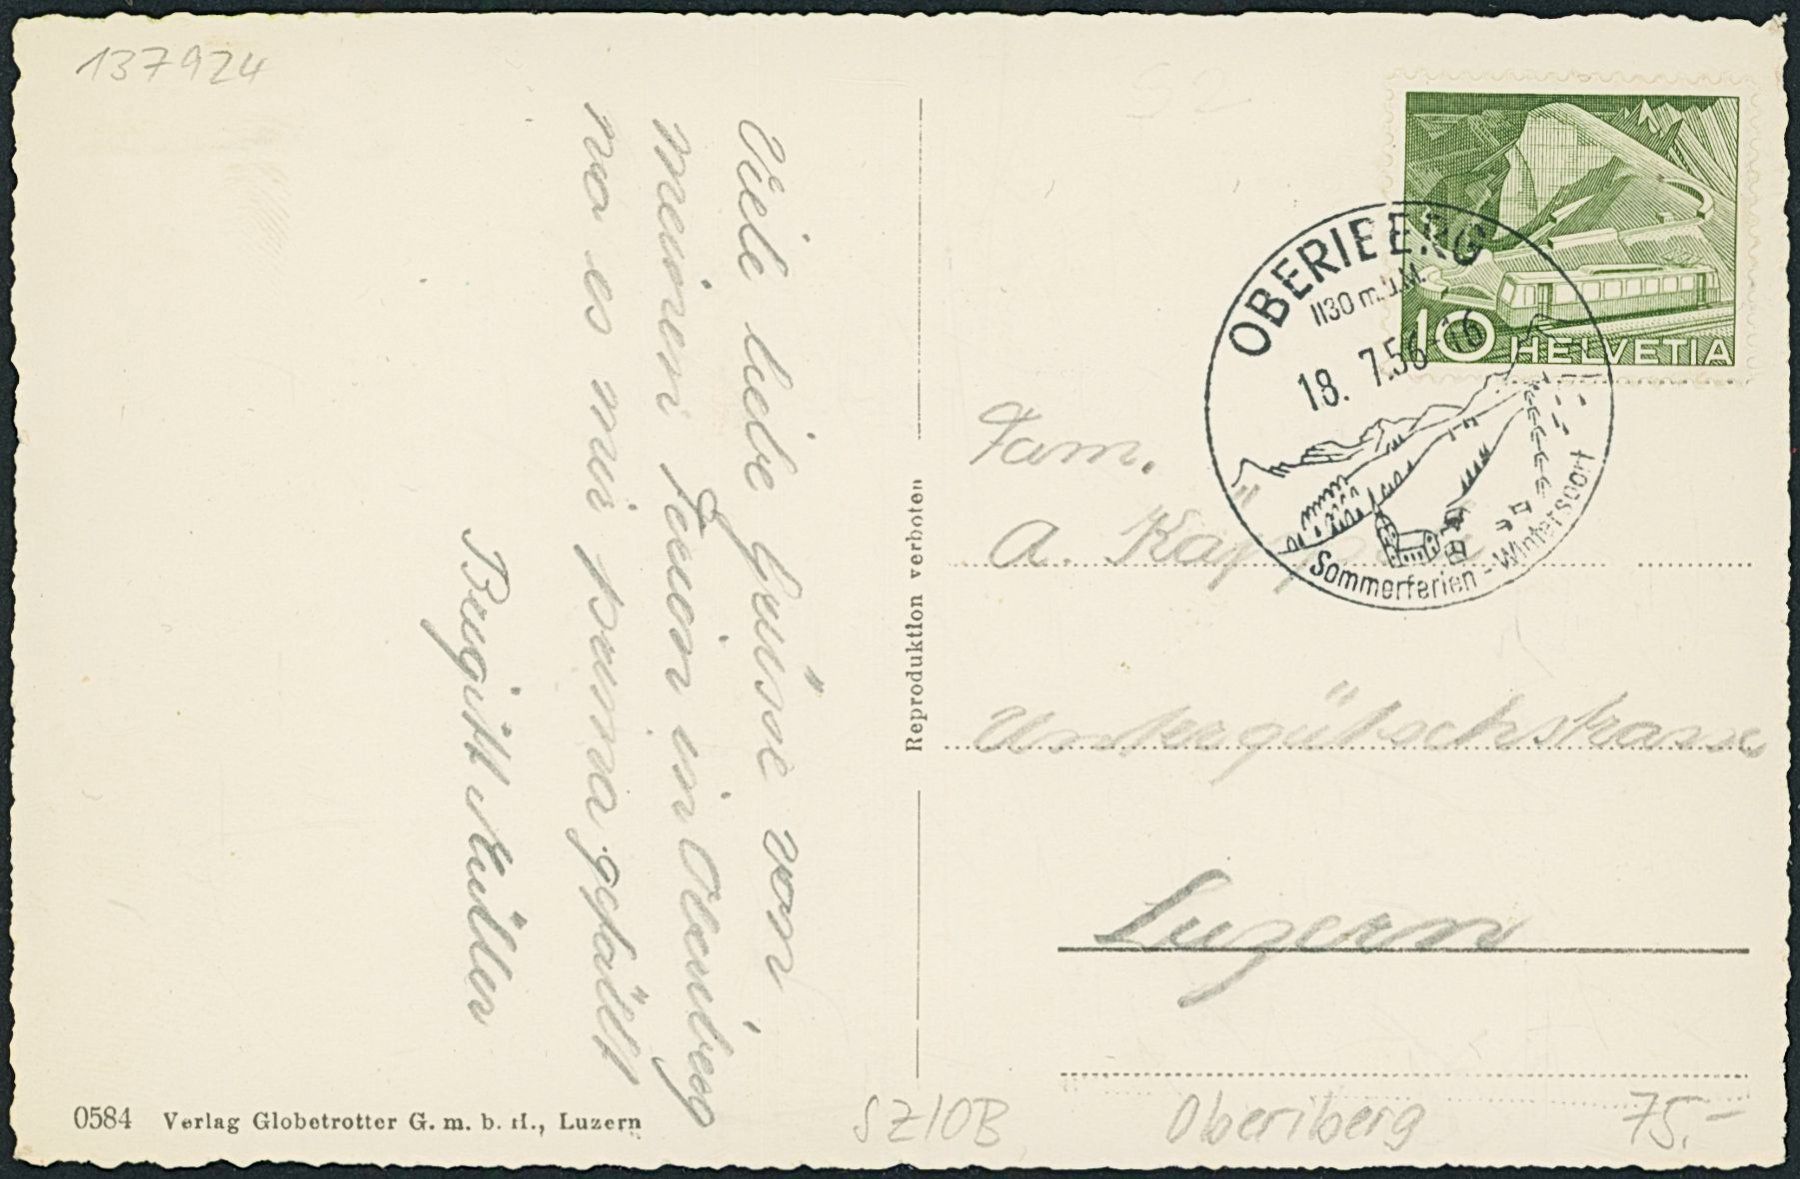 137924
Viele liebe Grüsse von
meinen Ferien in Oberiberg
wo es mir prima gefällt
Brigitt Müller
Reproduktion verboten
10 HELVETIA
OBERIBERG
1130 m.ü.M.
18. 7.56-16
Sommerferien - Wintersport
Fam.
A. Käppeli
Untergütschstrasse
Luzern
0584 Verlag Globetrotter G. m. b. H., Luzern
SZ/OB
Oberiberg
75.-